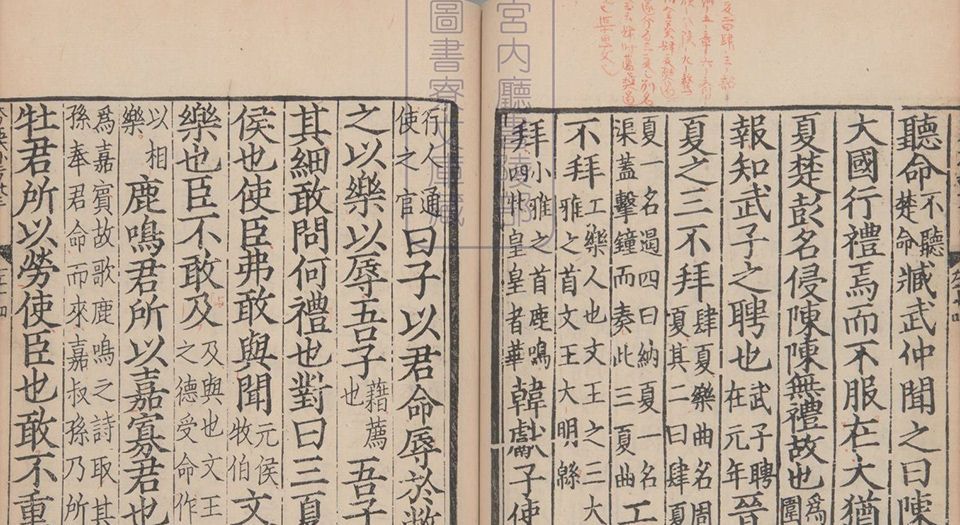 聽命不聽楚命臧武仲聞之曰陳
大國行禮焉而不服在大猶
夏楚彭名侵陳陳無禮故也爲圍
報知武子之聘也武子聘在元年晉
夏之三不拜肆夏樂曲名周夏其二曰肆
夏一名遏四曰納夏一名渠蓋擊鐘而奏此三夏曲工
不拜工樂人也文王之三大雅之首文王大明緜
拜小雅之首鹿鳴四牡皇皇者華韓獻子使
行人通使之官曰子以君命辱於敝
之以樂以辱吾子藉薦也吾子
其細敢問何禮也對曰三夏
侯也使臣弗敢與聞元侯牧伯文
樂也臣不敢及及與也文王之德受命作
以相樂鹿鳴君所以嘉寡君也
爲嘉賓故歌鹿鳴之詩取其孫奉君命而來嘉叔孫乃所
牡君所以勞使臣也敢不重
宮内廳書陵部
圖書寮文庫藏